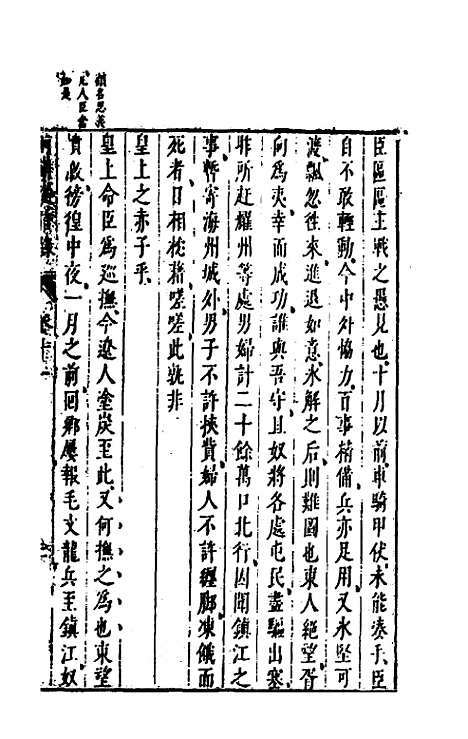 臣區區主戰之愚見也十月以前車騎甲仗未能湊手臣
自不敢輕動今中外協力百事精備兵亦足用又氷堅可
渡飄忽徃來進退如意氷解之后則難圖也東人絕望胥
向為夷幸而成功誰與吾守且奴將各處屯民盡驅出塞
昨所赶耀州等處男婦計二十餘萬口北行因聞鎮江之
事暫寄海州城外男子不許挾貲婦人不許纏脚凍餓而
死者日相枕藉嗟嗟此孰非
皇上之赤子乎
皇上命臣為巡撫今遼人塗炭至此又何撫之為也東望
憤欷徬徨中夜一月之前囘鄉屢報毛文龍兵至鎮江奴
顧名思義
凡人臣當
如是